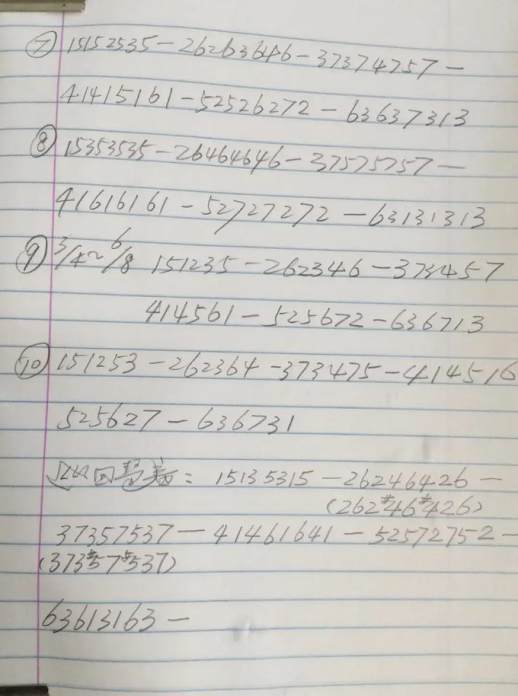 ⑦ 15152535-26263646-37374757-
41415161-52526272-63637313
⑧ 15353535-26464646-37575757-
41616161-52727272-63131313
⑨ 3/4~6/8 151235-262346-373457
414561-525672-636713
⑩ 151253-262364-373475-414516
525627-636731
: 15135315-26246426-
(262#46#426)
37357537-41461641-52572752-
(373#57#537)
63613163-